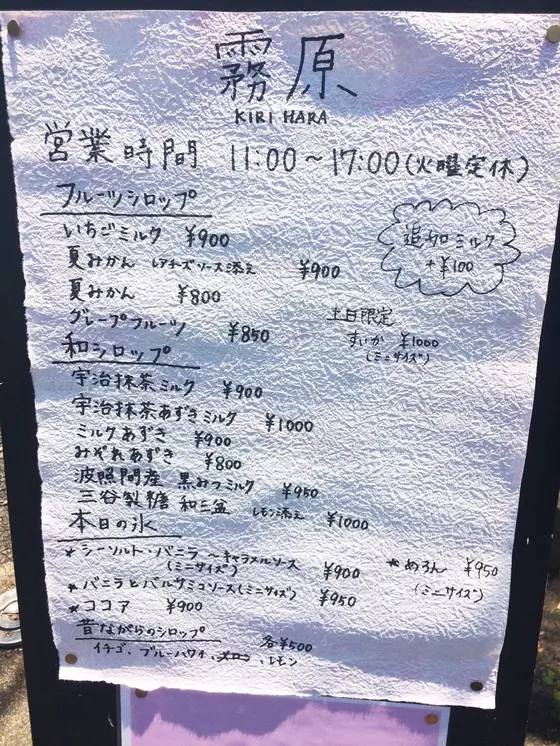 霧原
KIRI HARA
営業時間 11:00～17:00(火曜定休)
フルーツシロップ
いちごミルク ¥900
夏みかん レアチーズソース添え ¥900
夏みかん ¥800
グレープフルーツ ¥850
追加ミルク
+¥100
土日限定
すいか ¥1000
(ミニサイズ)
和シロップ
宇治抹茶ミルク ¥900
宇治抹茶あずきミルク ¥1000
ミルクあずき ¥900
みぞれあずき ¥800
波照間産 黒みつミルク ¥950
三谷製糖 和三盆 レモン添え ¥1000
本日の氷
★シーソルト・バニラ ～キャラメルソース ¥900
(ミニサイズ)
★バニラとバルサミコソース(ミニサイズ) ¥950
★ココア ¥900
★めろん ¥950
(ミニサイズ)
昔ながらのシロップ 各¥500
イチゴ、ブルーハワイ、メロン、レモン